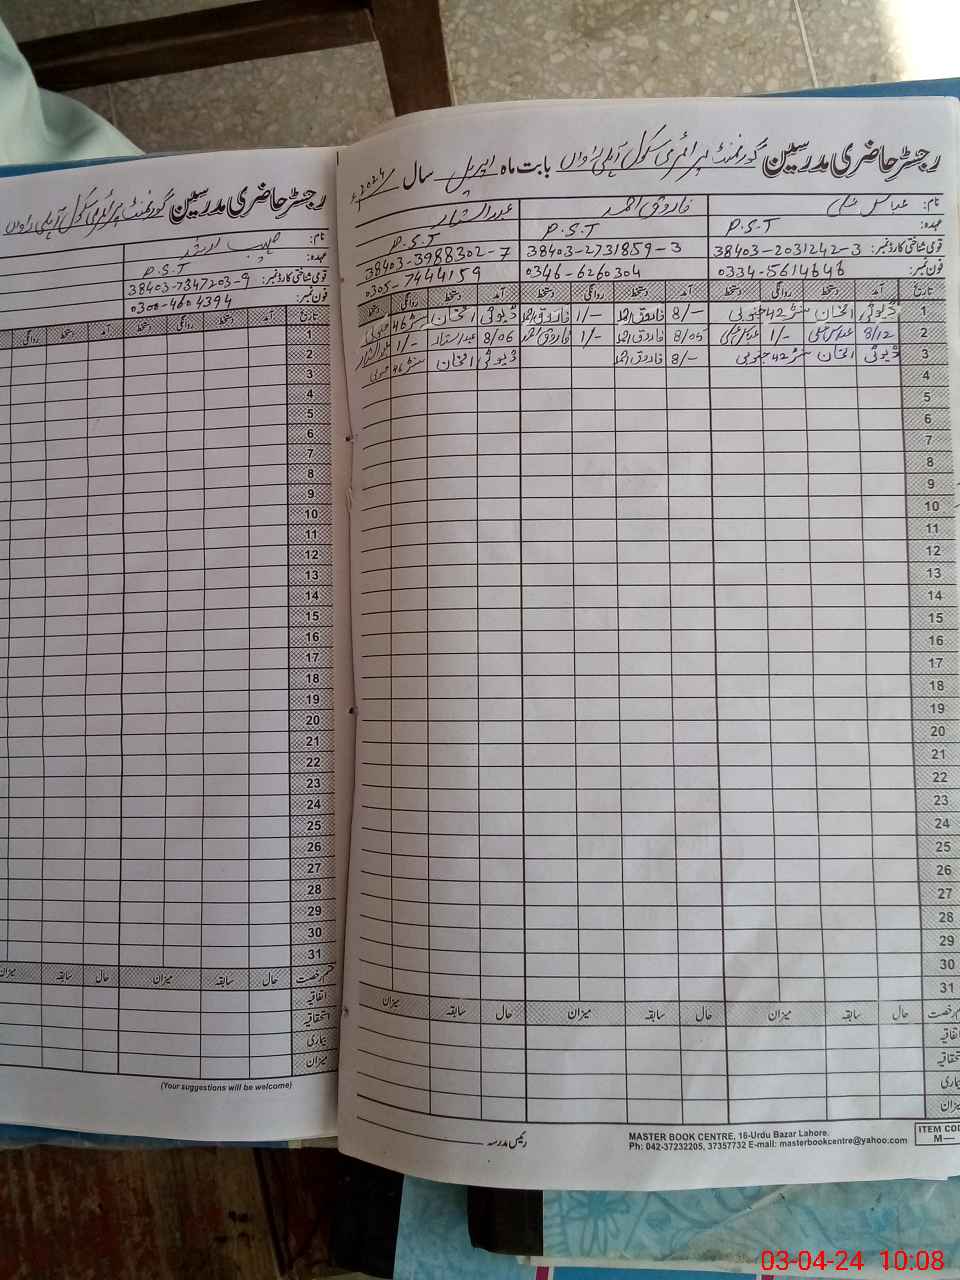 رجسٹر حاضری مدرسین گورنمنٹ پرائمری سکول بابت ماہ اپریل سال 2024ء
نام: عباس علی فاروق احمد عبدالستار
عہدہ: P.S.T P.S.T P.S.T
قومی شناختی کارڈ نمبر: 38403-2031242-3 38403-2731859-3 38403-3988302-7
فون نمبر: 0334-5614646 0346-6260304 0305-7444159
تاریخ آمد دستخط روانگی دستخط آمد دستخط روانگی دستخط آمد دستخط روانگی دستخط
1 ڈیوٹی امتحان سنٹر 42 جنوبی 8/- فاروق احمد 1/- فاروق احمد ڈیوٹی امتحان سنٹر 46 جنوبی
2 8/12 عباس علی 1/- عباس علی 8/05 فاروق احمد 1/- فاروق احمد 8/06 عبدالستار 1/- عبدالستار
3 ڈیوٹی امتحان سنٹر 42 جنوبی 8/- فاروق احمد ڈیوٹی امتحان سنٹر 46 جنوبی
4
5
6
7
8
9
10
11
12
13
14
15
16
17
18
19
20
21
22
23
24
25
26
27
28
29
30
31
رخصت حال سابقہ میزان حال سابقہ میزان حال سابقہ میزان
اتفاقیہ
استحقاقیہ
بیماری
میزان
رئیس مدرسہ
MASTER BOOK CENTRE, 16-Urdu Bazar Lahore.
Ph: 042-37232205, 37357732 E-mail: masterbookcentre@yahoo.com
ITEM COD
M—
رجسٹر حاضری مدرسین گورنمنٹ پرائمری سکول
نام:
عہدہ: P.S.T
قومی شناختی کارڈ نمبر: 38403-7347203-9
فون نمبر: 0300-4604394
تاریخ آمد دستخط روانگی دستخط آمد دستخط روانگی
1
2
3
4
5
6
7
8
9
10
11
12
13
14
15
16
17
18
19
20
21
22
23
24
25
26
27
28
29
30
31
قسم رخصت حال سابقہ میزان حال سابقہ میزان
اتفاقیہ
استحقاقیہ
بیماری
میزان
(Your suggestions will be welcome)
03-04-24 10:08